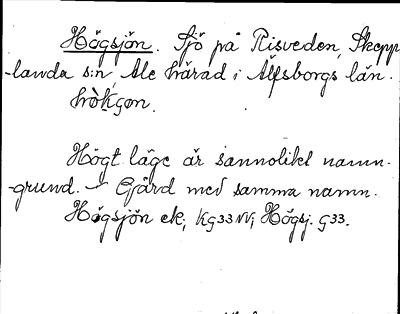 Högsjön. Sjö på Risveden, Skepp
-landa s:n, Ale härad i Älfsborgs län.
Högt läge är sannolikt namn-
-grund. — Gård med samma namn.
Högsjön ek; KG33NV; Högsj. G33.